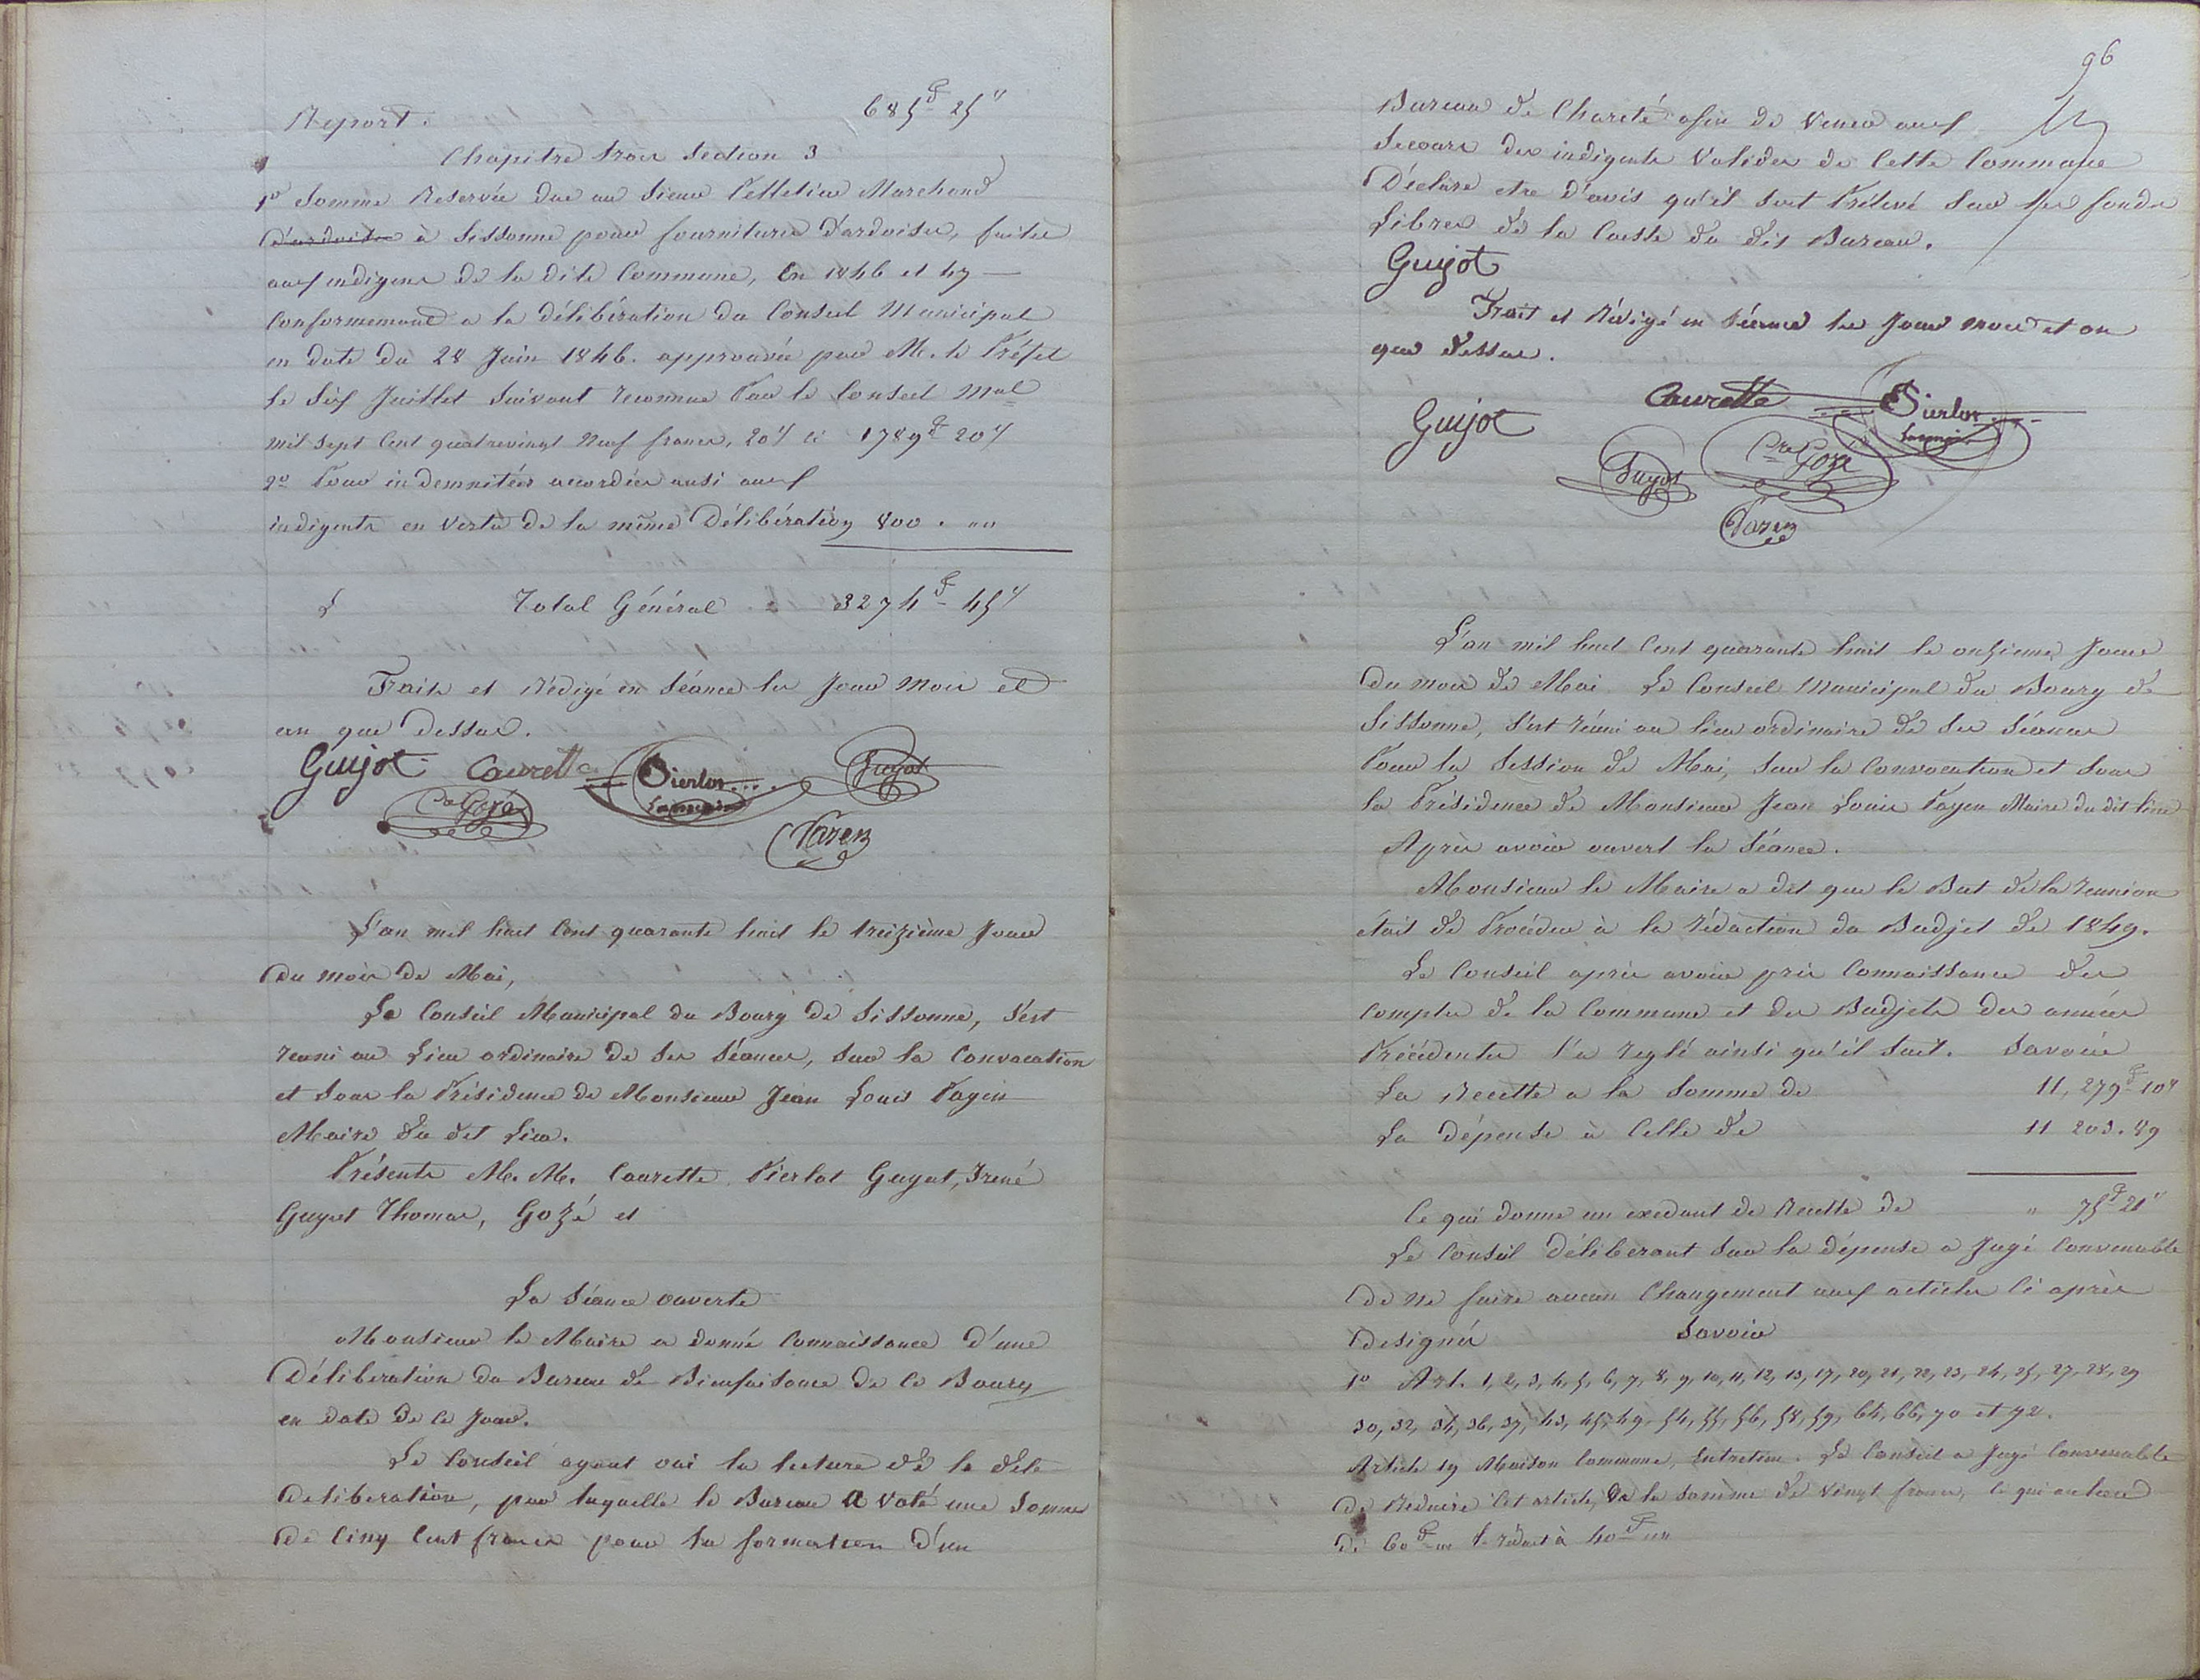 Report. 685f 25c
Chapitre trois Section 3
1o Somme Reservée due au Sieur Pelletier Marchand
d'ardoises à Sissonne pour fournitures d'ardoises, faites
aux indigens de la dite Commune, En 1846 et 47 —
Conformement a la délibération du Conseil Municipal
en date du 28 Juin 1846. approuvée par M. le Préfet
le Six Juillet Suivant reconnue Par le Conseil Mal
mil sept Cent quatrevingt Neuf francs, 20c ci 1789f 20c
2o Pour indemnitées accordées aussi aux
indigents en Vertu de la même Délibération 800 . ""
Total Général 3274f 45c
Fait et Rédigé en Séance les Jour Mois et
an que Dessus.
Guyot Caurette Pierlot Guyot
Gozé
Payen
L'an mil huit Cent quarante huit le treizième Jour
du mois de Mai,
Le Conseil Municipal du Bourg de Sissonne, S'est
reuni au Lieu ordinaire de Ses Séances, Sur la Convacation
et Sous la Présidence de Monsieur Jean Louis Payen
Maire du dit Lieu.
Présents M. M. Caurette, Pierlot Guyot, Irené
Guyot Thomas, Gozé et
La Séance ouverte
Monsieur le Maire a donné Connaissance d'une
Délibération du Bureau de Bienfaisance de ce Bourg
en date de ce Jour.
Le Conseil ayant oui la lecture de la dite
deliberation, par laquelle le Bureau a Voté une Somme
de Cinq Cent francs pour la formation d'un
96
Bureau de Charité afin de Venir aux
Secours des indigents Valides de Cette Commune
Déclare etre D'avis qu'il Soit Prélevé Sur les fonds
Libres de la Caisse du dit Bureau.
Guyot
Fait et Rédigé en Séance les Jour mois et an
que dessus.
Guyot Caurette Pierlot
Guyot Gozé
Payen
L'an mil huit Cent quarante huit le onzieme Jour
du mois de Mai. Le Conseil Municipal du Bourg de
Sissonne, S'est réuni au lieu ordinaire de Ses Séances
Pour la Session de Mai, Sur la Convocation et Sous
la Présidence de Monsieur Jean Louis Payen Maire du dit lieu
Après avoir ouvert la Séance.
Monsieur le Maire a dit que le But de la reunion
était de Procéder à la rédaction du Budjet de 1849.
Le Conseil après avoir pris Connaissance des
Comptes de la Commune et des Budjets des années
Précédentes l'a reglé ainsi qu'il Suit. Savoir
La Recette a la Somme de 11,279f 10c
La dépense à Celle de 11 203.89
Ce qui donne un excedant de Recette de " 75f 21c
Le Conseil Déliberant Sur la dépense a Jugé Convenable
de ne faire aucun Changement aux articles Ci après
designés Savoir
1o Art. 1, 2, 3, 4, 5, 6, 7, 8, 9, 10, 11, 12, 13, 17, 20, 21, 22, 23, 24, 25, 27, 28, 29
30, 32, 34, 36, 37, 43, 45, 49, 54, 55, 56, 58, 59, 64, 66, 70 et 72.
Article 19 Maison Commune, Entretien. Le Conseil a Jugé Convenable
de Réduire Cet article, de la Somme de Vingt francs, Ce qui au lieu
de 60f "" le réduit à 40f ""